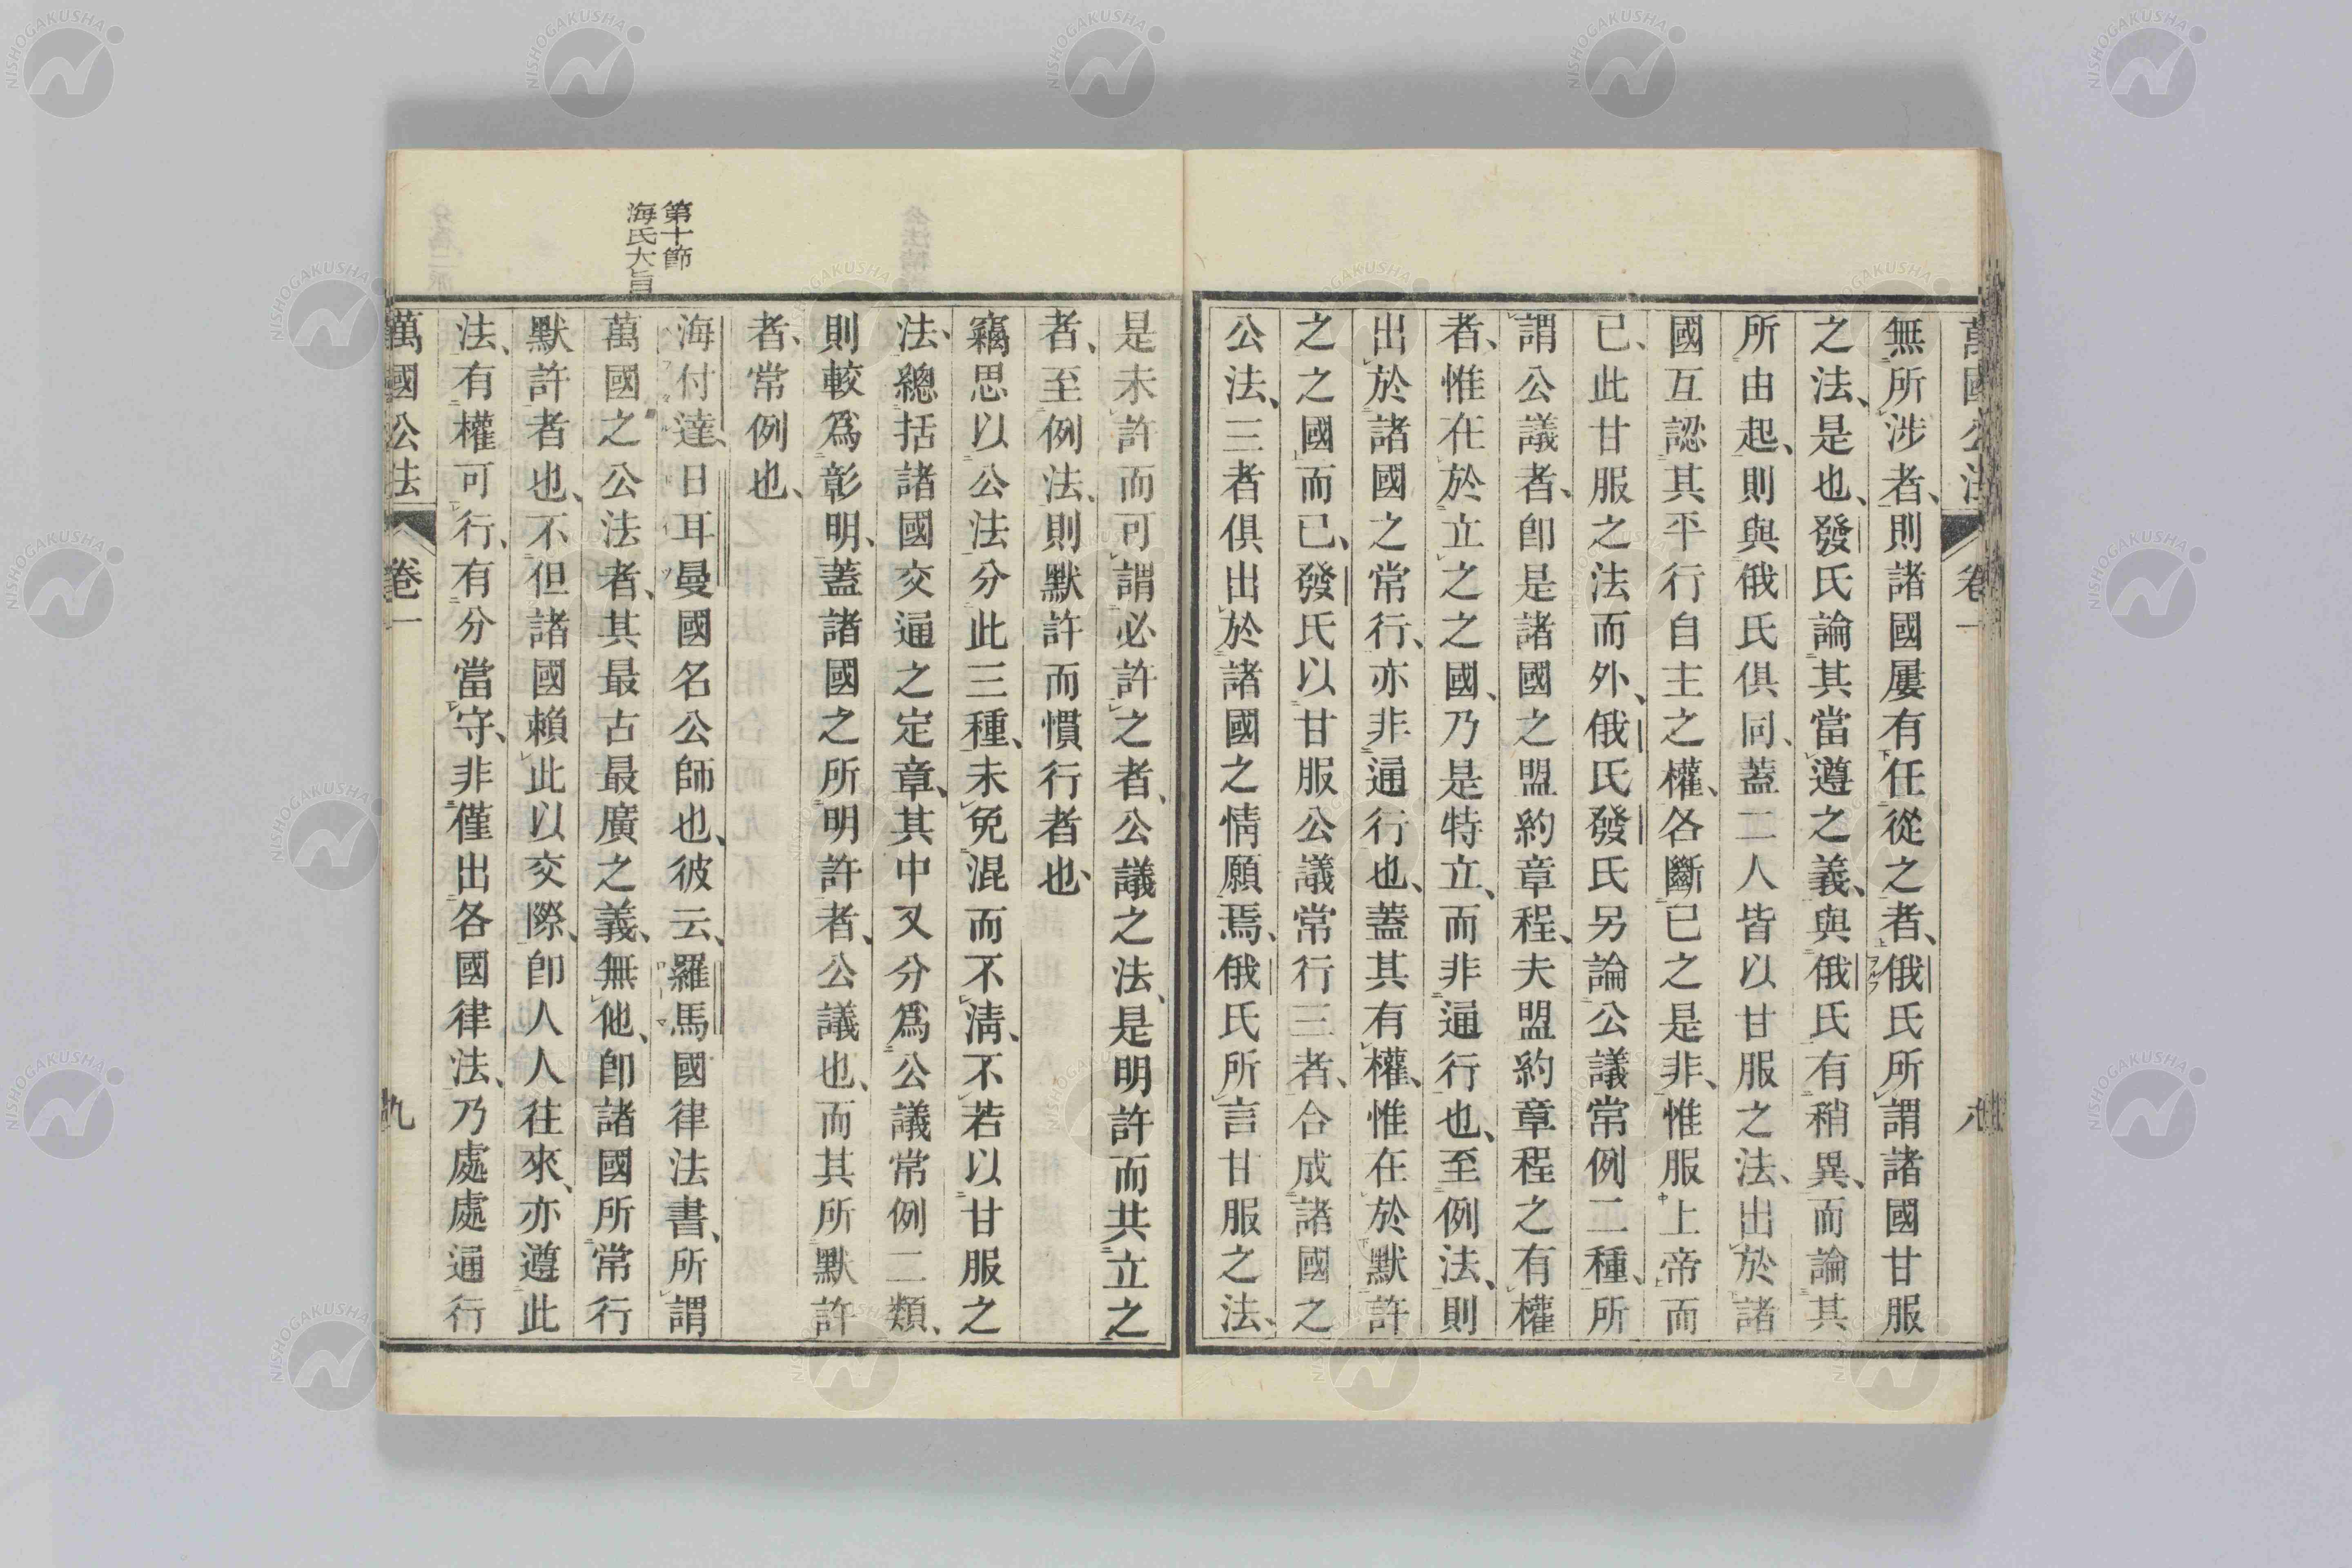 萬國公法 卷一 八
無所涉者、則諸國屢有任從之者、俄氏所謂諸國甘服
之法、是也、發氏論其當遵之義、與俄氏有稍異、而論其
所由起、則與俄氏俱同、蓋二人皆以甘服之法、出於諸
國互認其平行自主之權、各斷已之是非、惟服上帝而
已、此甘服之法而外、俄氏發氏另論公議常例二種、所
謂公議者、卽是諸國之盟約章程、夫盟約章程之有權
者、惟在於立之之國、乃是特立、而非通行也、至例法、則
出於諸國之常行、亦非通行也、蓋其有權、惟在於默許
之之國、而已、發氏以甘服公議常行三者、合成諸國之
公法、三者俱出於諸國之情願焉、俄氏所言甘服之法、
是未許而可謂必許之者、公議之法、是明許而共立之
者、至例法、則默許而慣行者也、
竊思以公法分此三種、未免混而不淸、不若以甘服之
法、總括諸國交通之定章、其中又分爲公議常例二類、
則較爲彰明、蓋諸國之所明許者、公議也、而其所默許
者、常例也、
第十節
海氏大旨
海付達日耳曼國名公師也、彼云、羅馬國律法書、所謂
萬國之公法者、其最古最廣之義、無他、卽諸國所常行
默許者也、不但諸國賴此以交際、卽人人往來、亦遵此
法、有權可行、有分當守、非僅出各國律法、乃處處通行
萬國公法 卷一 九
NISHOGAKUSHA